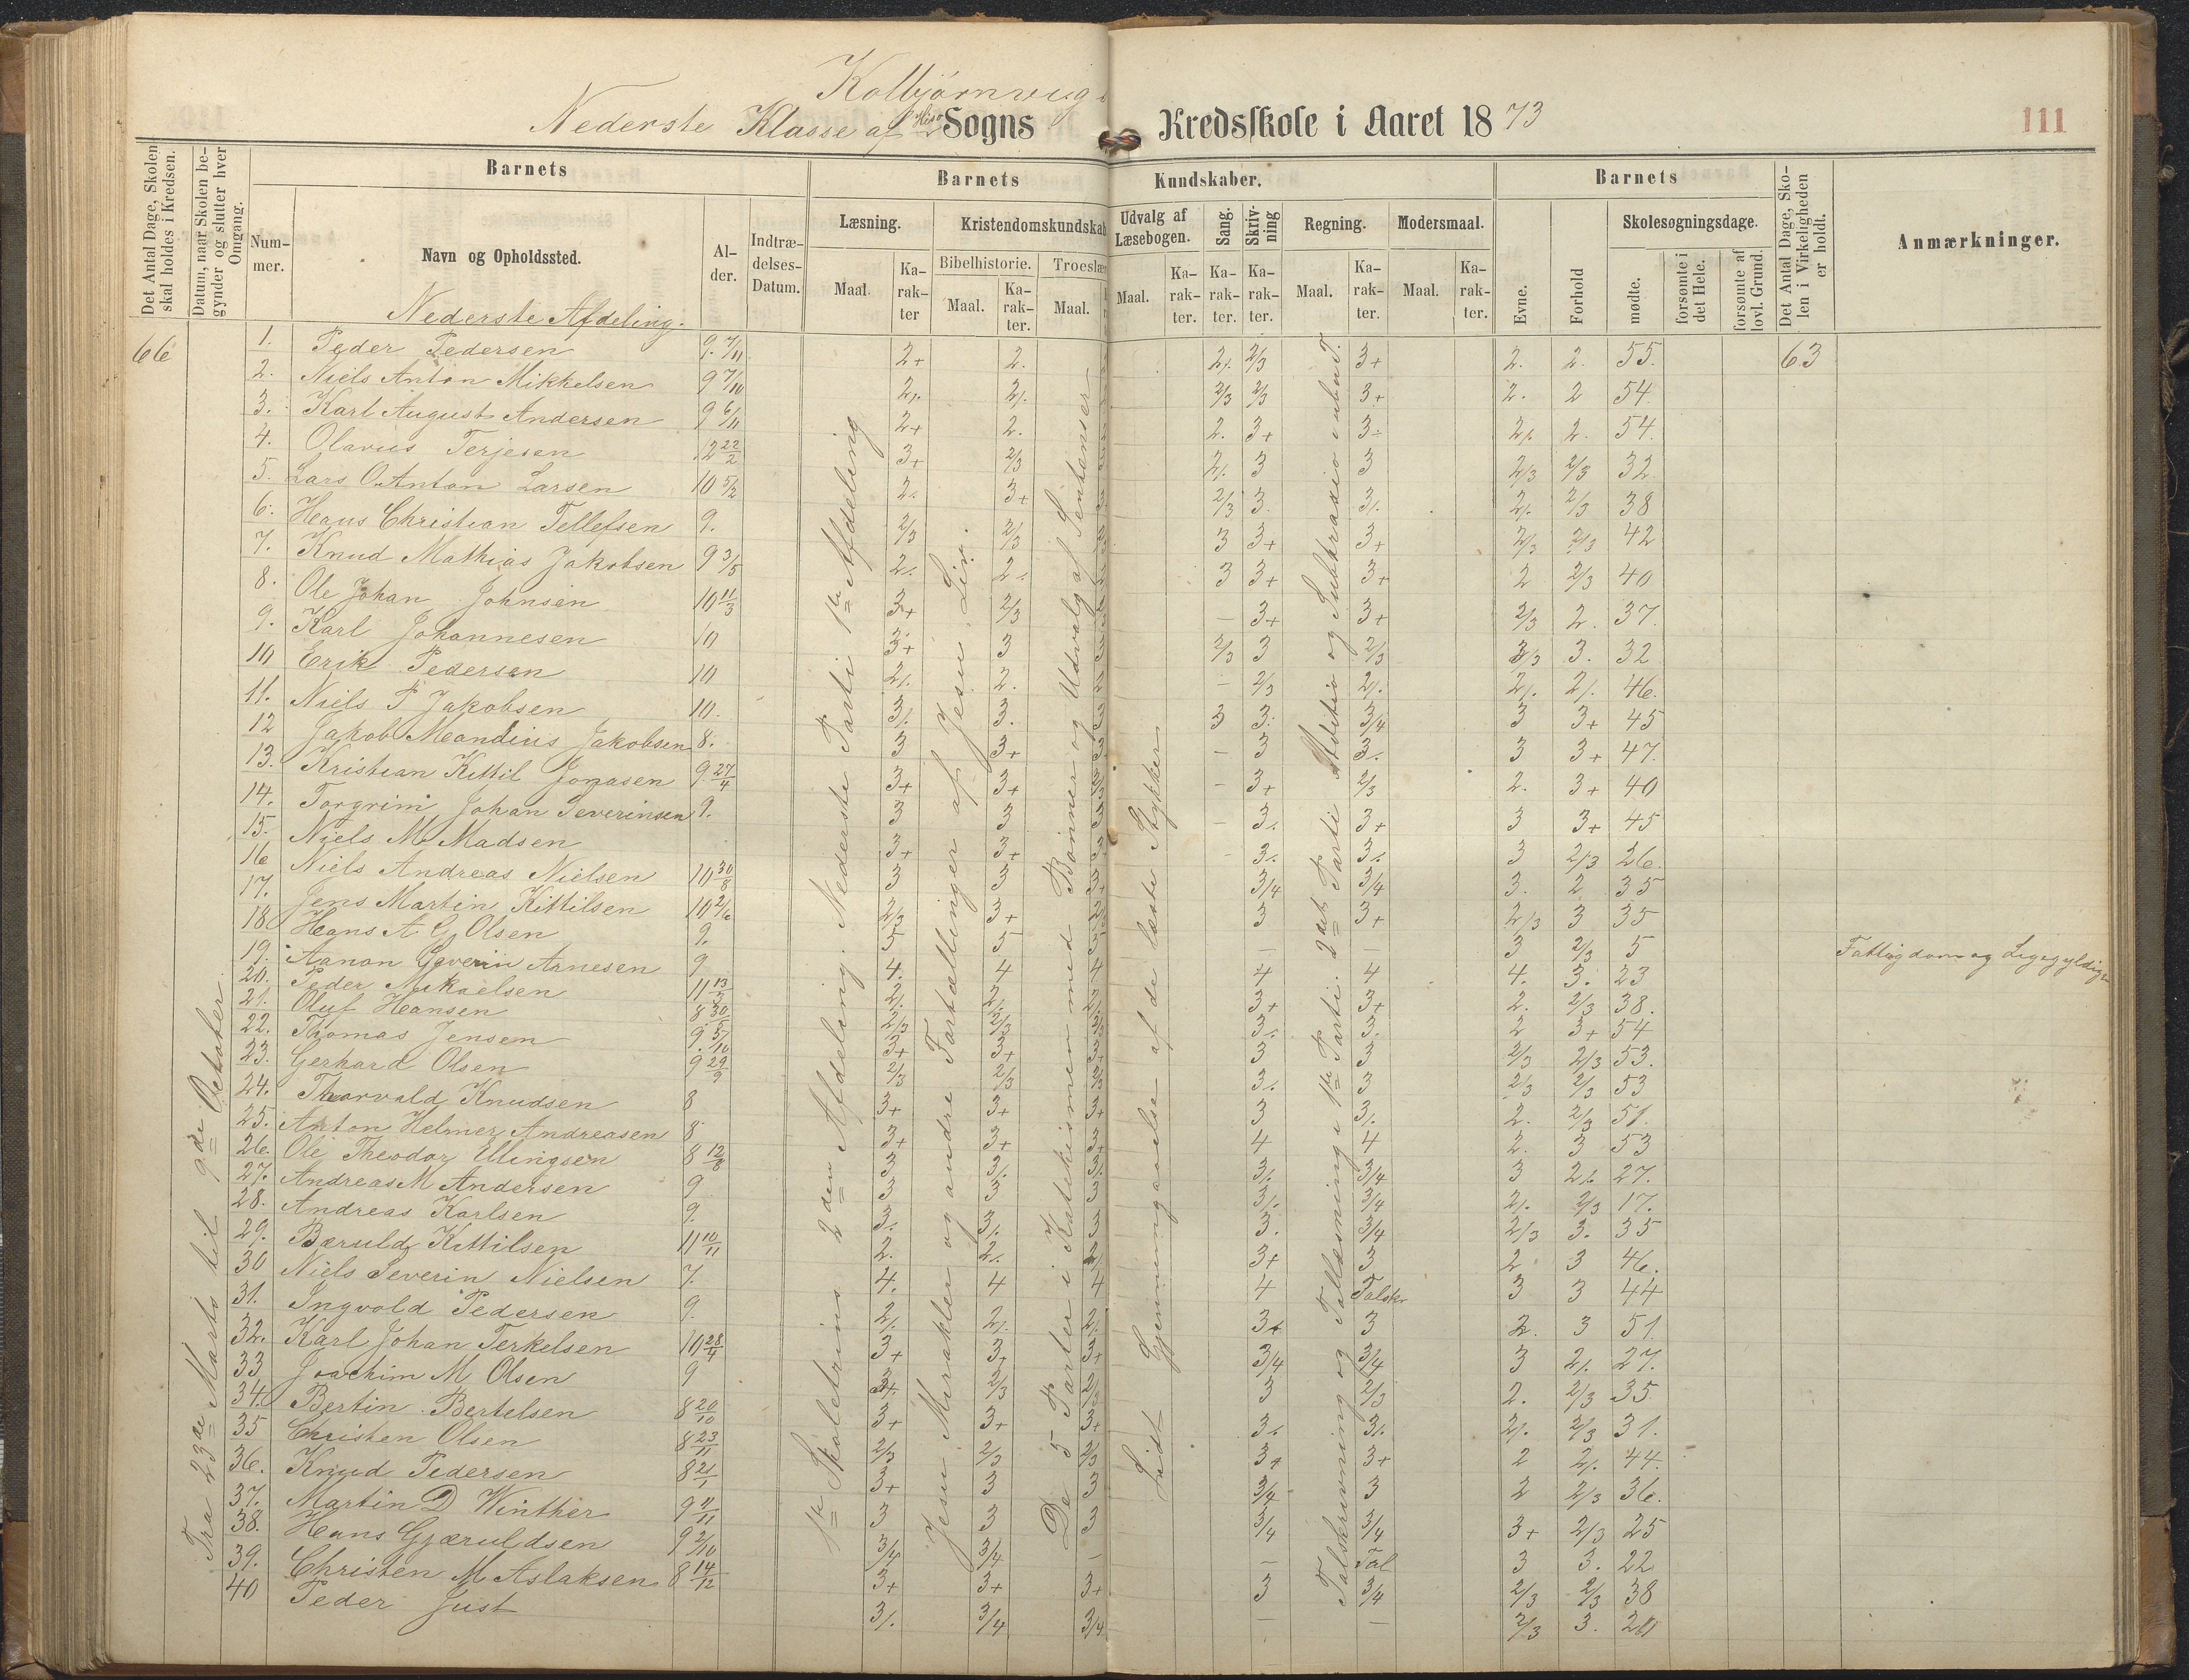 Kolbjørnsvigs
Nederste Klasse af Hisø Sogns Kredsskole i Aaret 1873
111
Det Antal Dage, Skolen skal holdes i Kredsen.
Datum, naar Skolen begynder og slutter hver Omgang.
Barnets
Nummer.
Navn og Opholdssted.
Alder.
Indtrædelses-Datum.
Barnets Kundskaber.
Læsning.
Maal.
Karakter
Kristendomskundskab
Bibelhistorie.
Maal.
Karakter.
Troeslære
Maal.
Udvalg af Læsebogen.
Maal.
Karakter.
Sang.
Karakter.
Skrivning
Karakter.
Regning.
Maal.
Karakter.
Modersmaal.
Maal.
Karakter.
Barnets
Evne.
Forhold
Skolesøgningsdage.
mødte.
forsømte i det Hele.
forsømte af lovl. Grund.
Det Antal Dage, Skolen i Virkeligheden er holdt.
Anmærkninger.
Nederste Afdeling.
66
Fra 23de Marts til 9de Oktober
1ste Skoletrins 2den Afdeling. Nederste Parti 1ste Afdeling
Jesu Mirakler og andre Fortællinger af Jesu Liv.
De 5 Parter i Katekismen med Bønner og Udvalg af Sentenser
Lidt Gjennemgaaelse af de læste Stykker
Talskrivning og Tallæsning i 1ste Parti. 2det Parti Addition og Subtraxio i ubnt T.
1. Peder Pedersen 9. 7/11 2+ 2. 2/. 2/3 3+ 2. 2. 55. 63
2. Niels Anton Mikkelsen 9 7/10 2/. 2/. 2/3 2/3 3+ 2. 2 54
3. Karl August Andersen 9 6/11 2+ 2. 2. 3+ 3÷ 2/. 2. 54.
4. Olavus Terjesen 12 22/2 3+ 2/3 2/. 3 3 2/3 2/3 32.
5. Lars O. Anton Larsen 10 5/2 2/. 3+ 2/3 3. 3/. 2/. 2/3 38
6. Hans Christian Tellefsen 9. 2/3 2/3 3 3+ 3+ 2/3 2/3 42
7. Knud Mathias Jakobsen 9 3/5 2/. 2/. 3 3+ 3+ 2 2/3 40
8. Ole Johan Johnsen 10 11/3 3+ 2/3 – 3+ 3+ 2/3 2. 37.
9. Karl Johannesen 10 3+ 3 2/3 3 2/3 3/3 3. 32
10 Erik Pedersen 10 2/. 2. – 2/3 2/. 2/. 2/. 46.
11. Niels P Jakobsen 10. 3/. 3. 3 3. 3/4 3 3+ 45
12 Jakob Meandius Jakobsen 8. 3 3+ – 3 3/. 3 3+ 47.
13. Kristian Kittil Jonasen 9 27/4 3+ 3+ – 3+ 2/3 2. 3+ 40
14. Torgrim Johan Severinsen 9. 3 3 – 3/. 3+ 3 3+ 45
15. Niels M. Madsen 3+ 3+ – 3/. 3/. 3 2/3 26.
16 Niels Andreas Nielsen 10 30/8 3 3 3/4 3/4 3. 2 35
17. Jens Martin Kittilsen 10 2/6 2/3 3+ 3 3+ 2/3 3 35
18 Hans A. G. Olsen 9. 5 5 – – 3 2/3 5
19. Aanon Severin Arnesen 9 4. 4 4 4 4 4. 3. 23 Fattigdom og Ligegyldighed
20. Peder Mikaelsen 11 13/3 2/. 2/. 3+ 3+ 2. 2/3 38.
21. Oluf Hansen 8 30/5 2/3 2/3 3/. 3. 2 3+ 54
22. Thomas Jensen 9. 5/10 3+ 3+ 3 3 2/3 2/3 53.
23. Gerhard Olsen 9 29/9 2/3 2/3 3/. 3 2/3 2/3 53
24. Thorvald Knudsen 8 3+ 3+ 3+ 3 3/. 2. 2/3 51.
25. Anton Helmer Andreasen 8 3+ 3+ 3+ 4 4 2. 3 53
26. Ole Theodor Ellingsen 8 12/8 3 3/. 3/. 3/. 3/4 3 2/. 27.
27. Andreas M Andersen 9 3 3 3 3/. 3/4 2/. 2/3 17.
28. Andreas Karlsen 9. 3/. 3/. 3 3. 3/4 2/3 3. 35
29. Bæruld Kittilsen 11 10/11 2. 2/. 2/. 3+ 3 2 3 46.
30 Niels Severin Nielsen 7. 4. 4 4 4 Talskr 3 3 44
31. Ingvold Pedersen 9. 2/. 2/. 2/. 3+ 3 2. 3 51
32. Karl Johan Terkelsen 10 28/4 3+ 3+ 3+ 3/4 3/4 3 2/. 27.
33 Joachim M Olsen 9 2/3 2/3 3 2/3 2. 2/3 35.
34. Bertin Bertelsen 8 20/10 3+ 3+ 3+ 3/. 3/. 2/. 2/3 31.
35 Christen Olsen 8 23/11 2/3 2/3 2/3 3+ 3+ 2 2/. 44.
36. Knud Pedersen 8 21/1 3+ 3 3 3/4 3 2 2/3 36.
37. Martin D Winther 9 11/11 3 3 3 3/4 3/4 3+ 2/3 25
38. Hans Gjæruldsen 9 2/10 3/4 3/4 – – Tal 3 3. 22
39. Christen M Aslaksen 8 14/12 3+ 3+ 3+ 3 3/4 2/3 2/3 38
40 Peder Just 3/. 3/4 3/4 – – 2/3 3. 20